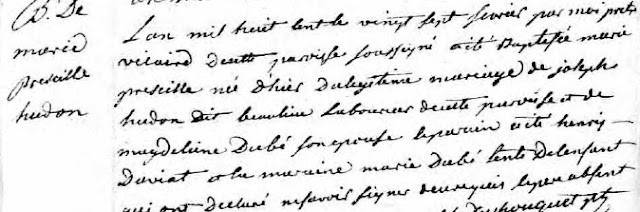 B. De
marie
prescille
hudon
L'an mil huit cent le vingt sept fevrier par moi prtre
vicaire de cette paroisse soussigné a été Baptisée marie
prescille né d'hier du legitime mariage de joseph
hudon dit beaulieu Laboureur de cette paroisse et de
magdeleine Dubé son epouse le parain a été henry
Daviat et la maraine marie Dubé tente De lenfant
qui ont declaré ne savoir signer de ce requis le pere absent
ptr